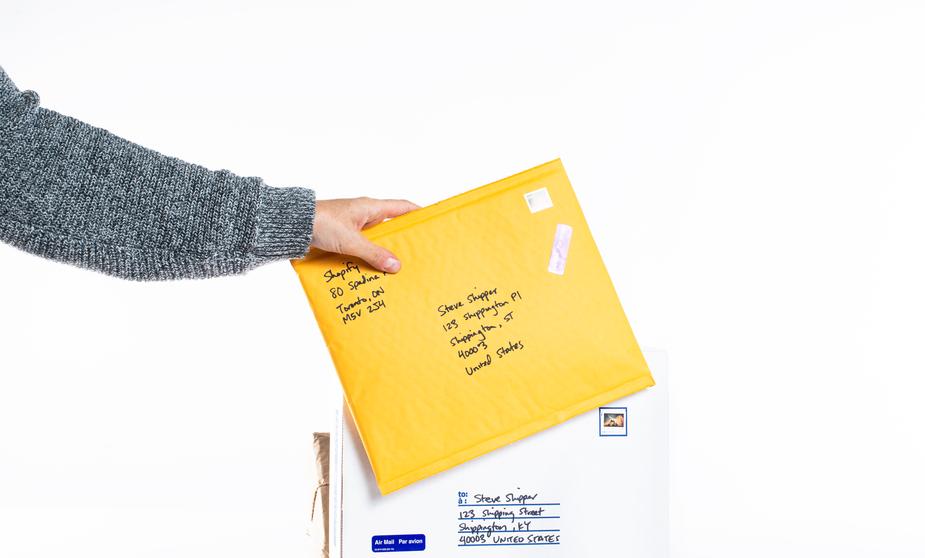 Shopify
80 Spadina
Toronto, ON
M5V 2J4
Steve Shipper
123 Shippington Pl
Shippington, ST
40003
United States
to:
à:
Steve Shipper
123 Shipping Street
Shippington, KY
40003 UNITED STATES
Air Mail Par avion